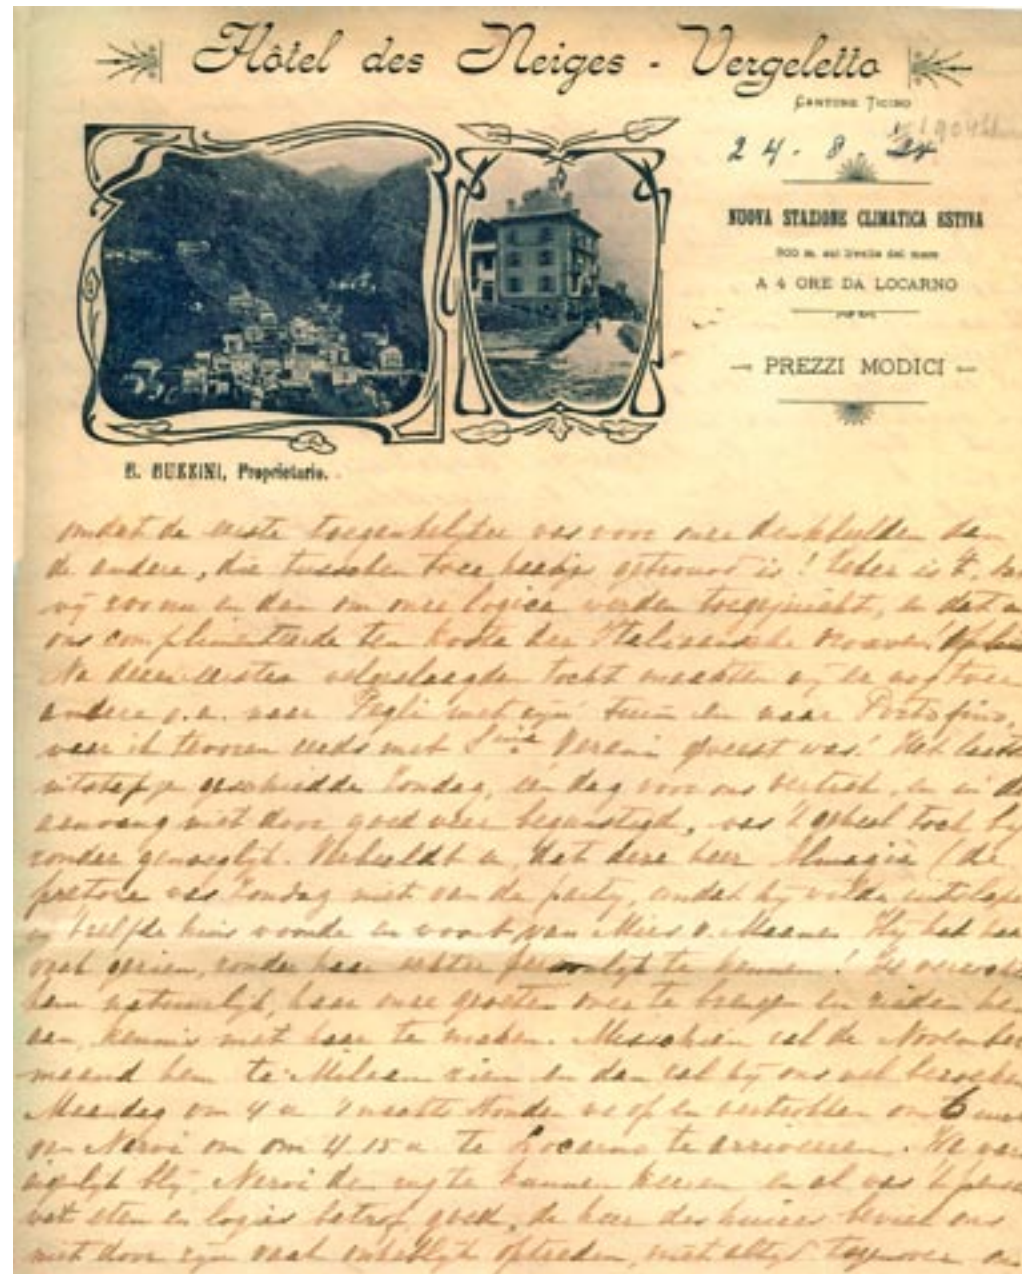 Hôtel des Neiges - Vergeletto
CANTONE TICINO
24 - 8 -
NUOVA STAZIONE CLIMATICA ESTIVA
900 m. sul livello del mare
A 4 ORE DA LOCARNO
PREZZI MODICI
BUZZINI, Proprietario.
omdat de eerste toegankelijker was voor onze denkbeelden dan
de andere, die tusschen twee haakjes getrouwd is! Zeker is 't,
wij zoo nu en dan om onze logica werden toegejuicht, en dat
ons complimenteerde ten koste der Italiaansche vrouwen
Na deze eerste welgeslaagden tocht maakten wij er nog twee
andere o.a. naar Pegli met zijn tuin en naar Portofino,
waar ik tevoren reeds met geweest was! Het laatste
uitstapje geschiedde Zondag, een dag voor ons vertrek, en in
aanvang niet door goed weer begunstigd, was 't geheel toch
zonder genoegelijk. Verbeeldt u, dat deze heer Almagià (de
pretore was Zondag niet van de party, omdat hij wilde
hetzelfde huis woonde en woont van Miss v. Maanen. Hij had haar
vaak gezien, zonder haar echter persoonlijk te kennen! We
hem natuurlijk, haar onze groeten over te brengen en rieden hem
aan, kennis met haar te maken. Misschien zal de November
maand hem te Milaan zien en dan zal hij ons wel bezoeken
Maandag om 4 u 's nachts stonden we op en vertrokken om 6 uur
van Nervi om om 4.15 u te Locarno te arriveeren. We waren
eigenlijk blij Nervi den rug te kunnen keeren en al was 't
wat eten en logies betrof, goed, de heer des huizes beviel ons
niet door zijn vaak onhebbelijk optreden, niet altijd tegenover